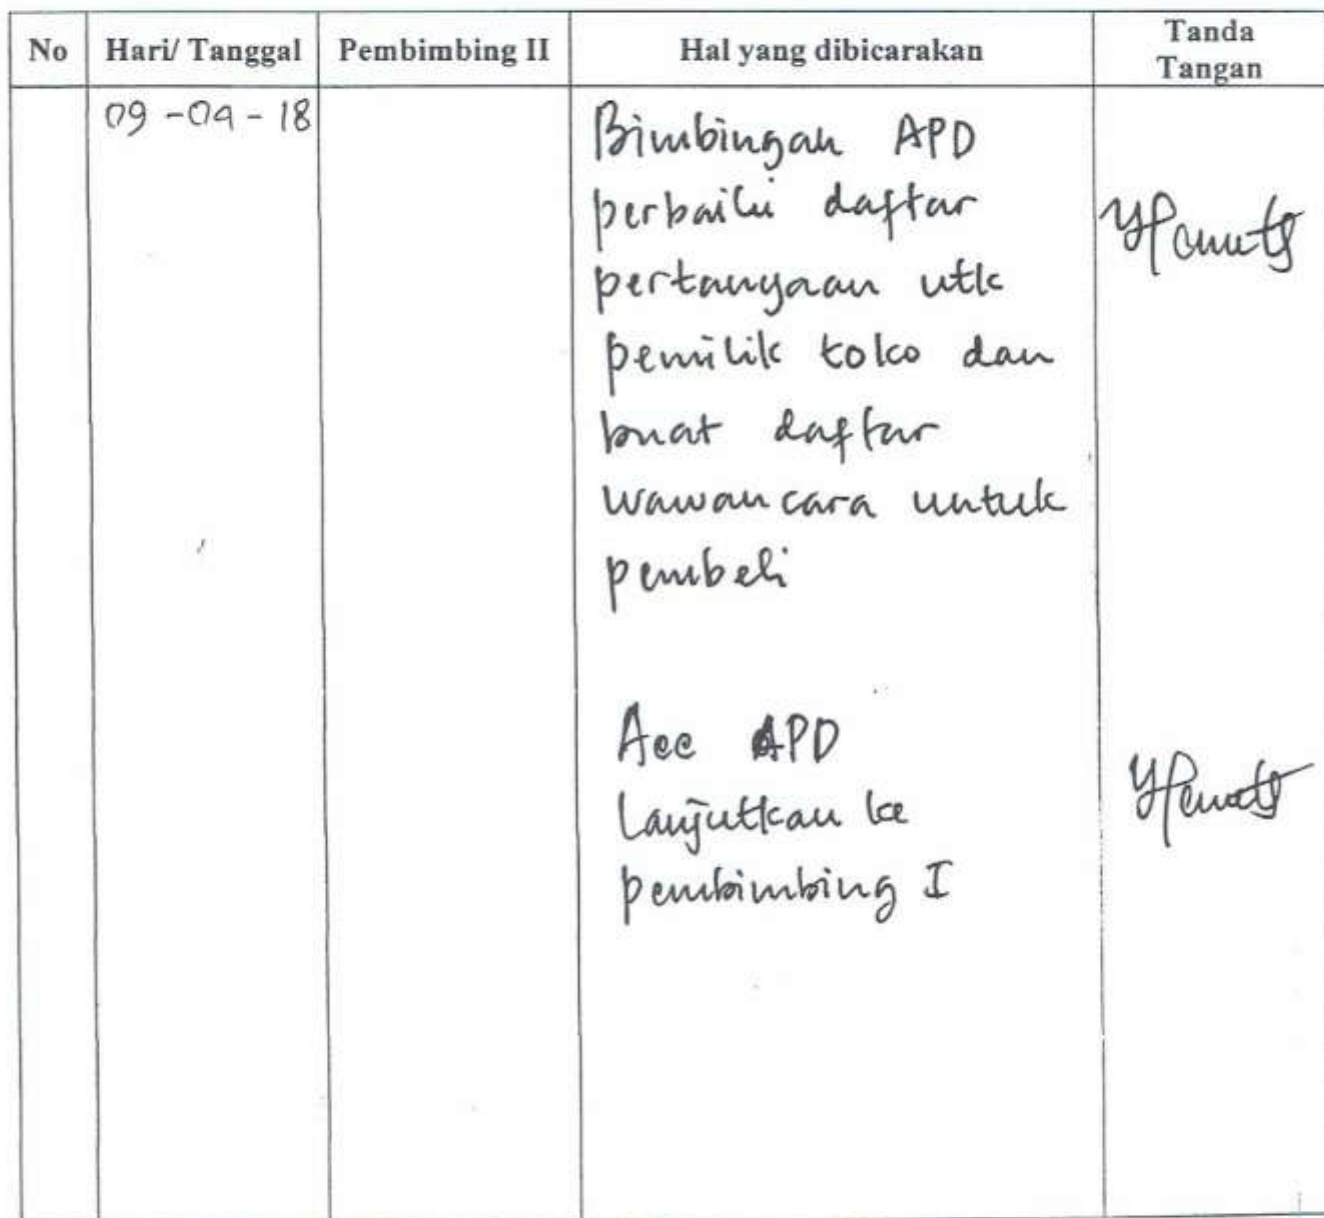 No Hari/ Tanggal Pembimbing II Hal yang dibicarakan Tanda Tangan
09-04-18
Bimbingan APD
perbaiki daftar
pertanyaan utk
pemilik toko dan
buat daftar
wawancara untuk
pembeli
Acc APD
Lanjutkan ke
pembimbing I